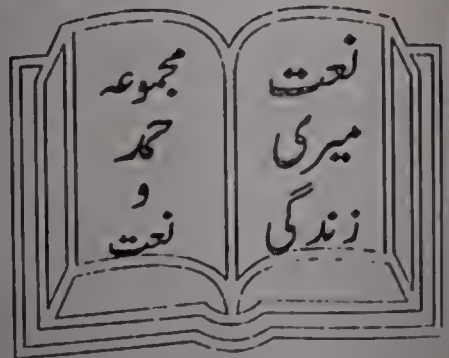 نعت
میری
زندگی
مجموعہ
حمد
و
نعت